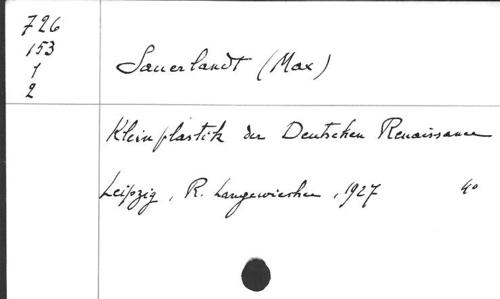 726
153
1
2
Sauerlandt (Max)
Kleinplastik der Deutschen Renaissance
Leipzig, R. Langewiesche, 1927 4°